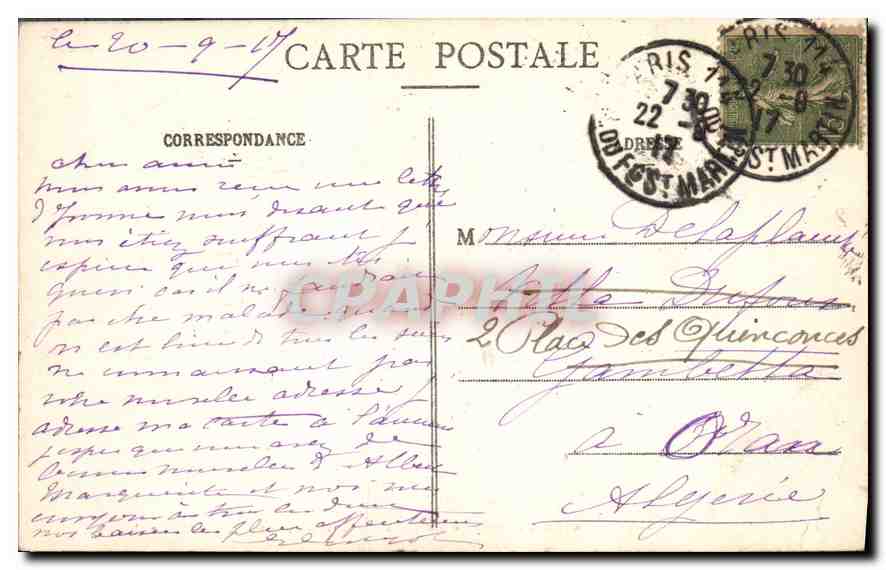 le 20-9-17
CARTE POSTALE
PARIS 114
7 30
22 -9
17
R. DU FG ST MARTIN
PARIS 114
7 30
22 -9
17
ST MARTIN
CORRESPONDANCE
ADRESSE
cher ami
nous avons reçu une lettre
d'Yvonne nous disant que
vous étiez souffrant j'
espère que vous êtes
guéri car il ne faudrait
pas être malade quand
on est loin de tous les siens
ne connaissant pas
votre nouvelle adresse j'
adresse ma carte à l'ancienne
j'espère que vous avez de
bonnes nouvelles d'Albert
Marguerite et moi nous
envoyons à tous les deux
nos baisers les plus affectueux
Monsieur Delaplanche
Villa Dufour
2 Place des Quinconces
Gambetta
à Oran
Algérie
CPAPHIL